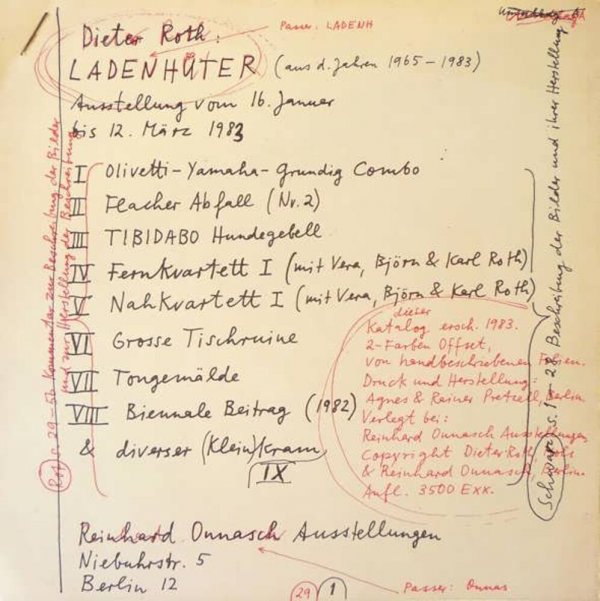 Passer. LADENH
Dieter Roth:
LADENHÜTER (aus d. Jahren 1965-1983)
Ausstellung vom 16. Januar
bis 12. März 1983
I Olivetti-Yamaha-Grundig Combo
II Flacher Abfall (Nr. 2)
III TIBIDABO Hundegebell
IV Fernkvartett I (mit Vera, Björn & Karl Roth)
V Nahkvartett I (mit Vera, Björn & Karl Roth)
VI Grosse Tischruine
VII Tongemälde
VIII Biennale Beitrag (1982)
& diverser (Klein)kram
IX
dieser
Katalog ersch. 1983.
2-Farben Offset,
von handbeschriebenen Folien.
Druck und Herstellung:
Agnes & Rainer Pretzell, Berlin.
Verlegt bei:
Reinhard Onnasch Ausstellungen
Copyright Dieter Roth
& Reinhard Onnasch, Berlin.
Aufl. 3500 Exx.
Rot: S. 29-56 Kommentar zur Beschreibung der Bilder
und zur Herstellung der Beschreibung
Schwarz: S. 1-28 Beschreibung der Bilder und ihrer Herstellung
Reinhard Onnasch Ausstellungen
Niebuhrstr. 5
Berlin 12
Passer: Onnas
29 1